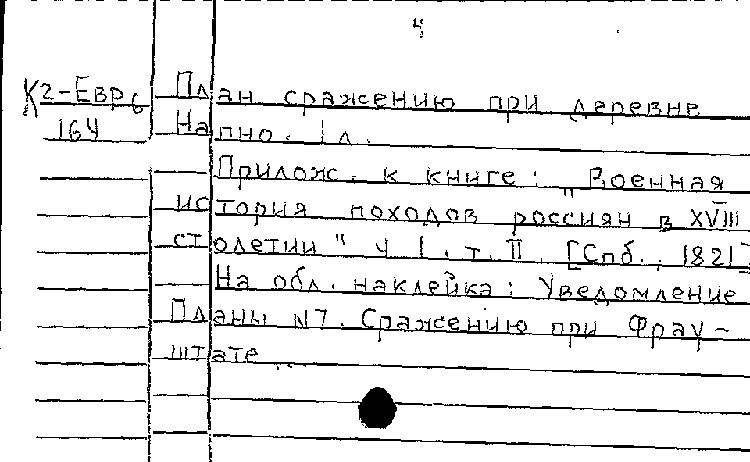 4
К2-Евр6 План сражению при деревне
164 Напно. 1 л.
Прилож. к книге: „Военная
история походов россиян в XVIII
столетии" ч I. т. II. [Спб., 1821]
На обл. наклейка: Уведомление
Планы N7. Сражению при Фрау-
штате..